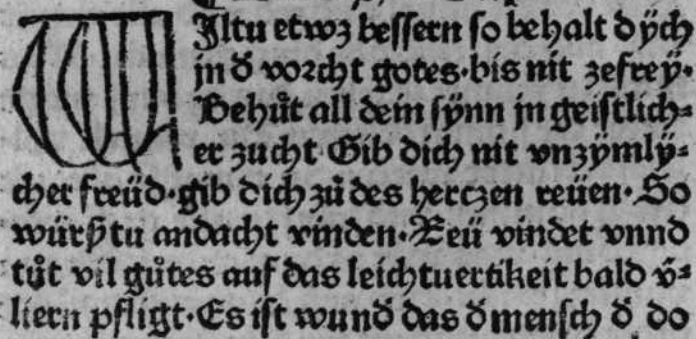 WIltu etwz bessern so behalt dÿch
jn d̾ vorcht gotes·bis nit zefreÿ·
Behuͦt all dein sÿnn jn geistlich⸗
er zucht·Gib dich nit vnzÿmlÿ⸗
cher freüd·gib dich zuͦ des hertzen reüen·So
würstu andacht vinden·Reü vindet vnnd
tuͦt vil guͦtes auf das leichtuertikeit bald v̾⸗
liern pfligt·Es ist wund̾ das d̾ mensch d̾ do